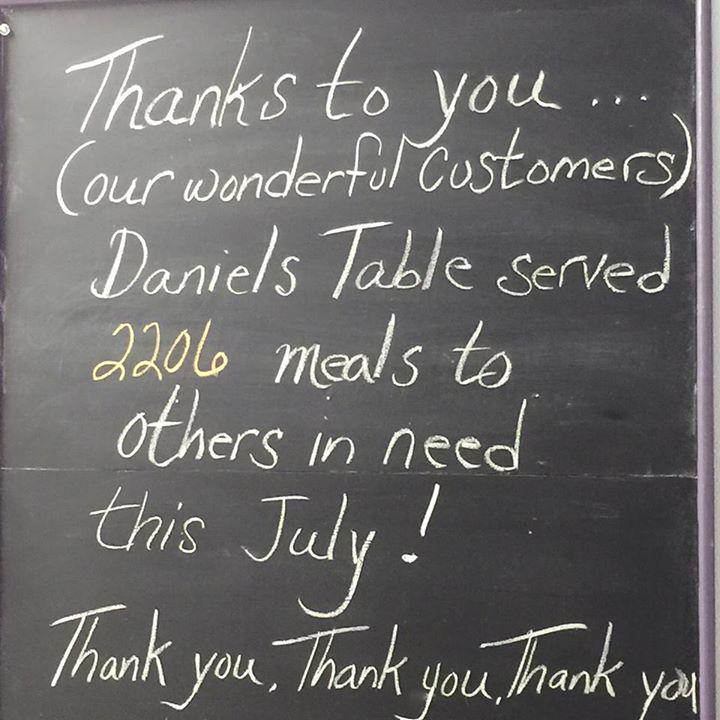 Thanks to you ...
(our wonderful customers)
Daniels Table served
2206 meals to
others in need
this July!
Thank you, Thank you, Thank you